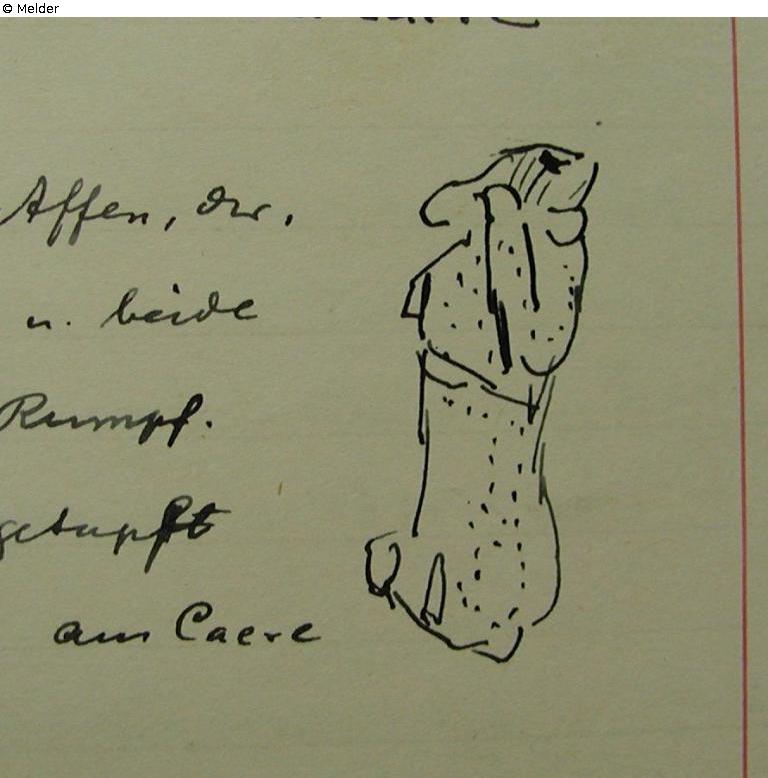 © Melder
Affen, der,
u. beide
Rumpf.
getupft
aus Caere